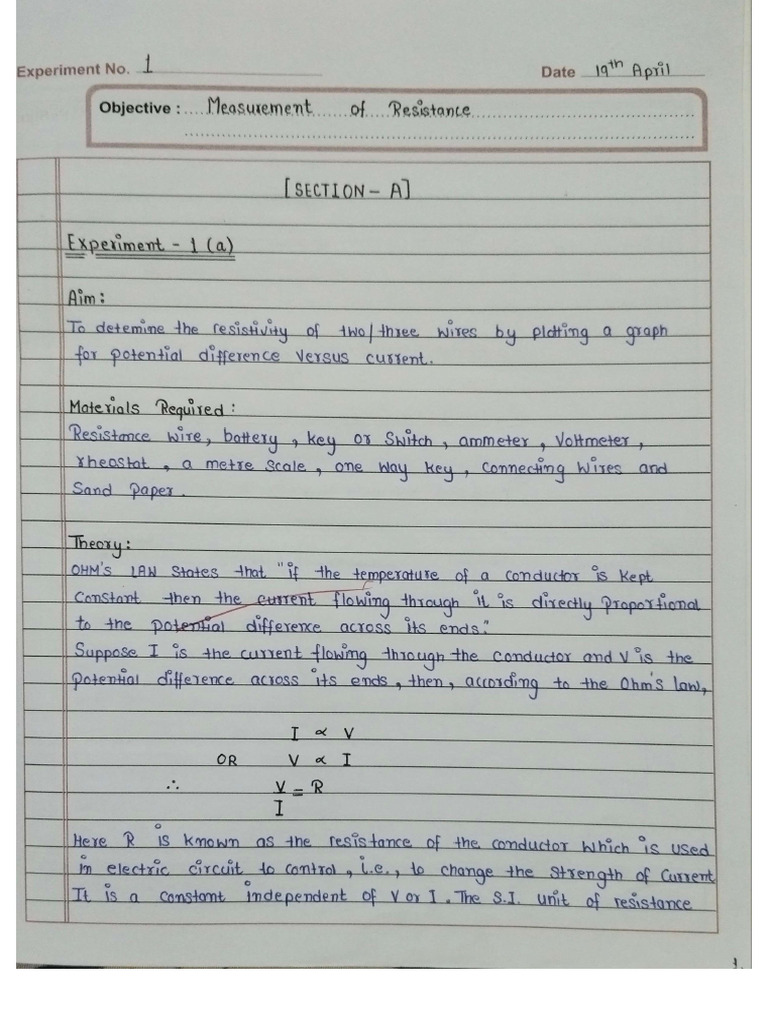 Experiment No. 1 Date 19th April
Objective : Measurement of Resistance
[SECTION - A]
Experiment - 1 (a)
Aim :
To detemine the resistivity of two/three wires by plotting a graph
for potential difference versus current.
Materials Required :
Resistance wire, battery, key or Switch, ammeter, Voltmeter,
rheostat, a metre scale, one way key, connecting wires and
Sand paper.
Theory :
OHM's LAW States that "if the temperature of a conductor is kept
constant then the current flowing through it is directly proportional
to the potential difference across its ends."
Suppose I is the current flowing through the conductor and V is the
potential difference across its ends, then, according to the Ohm's law,
I ∝ V
OR V ∝ I
∴ V = R
I
Here R is known as the resistance of the conductor which is used
in electric circuit to control, i.e., to change the strength of current
It is a constant independent of V or I. The S.I. unit of resistance
1.